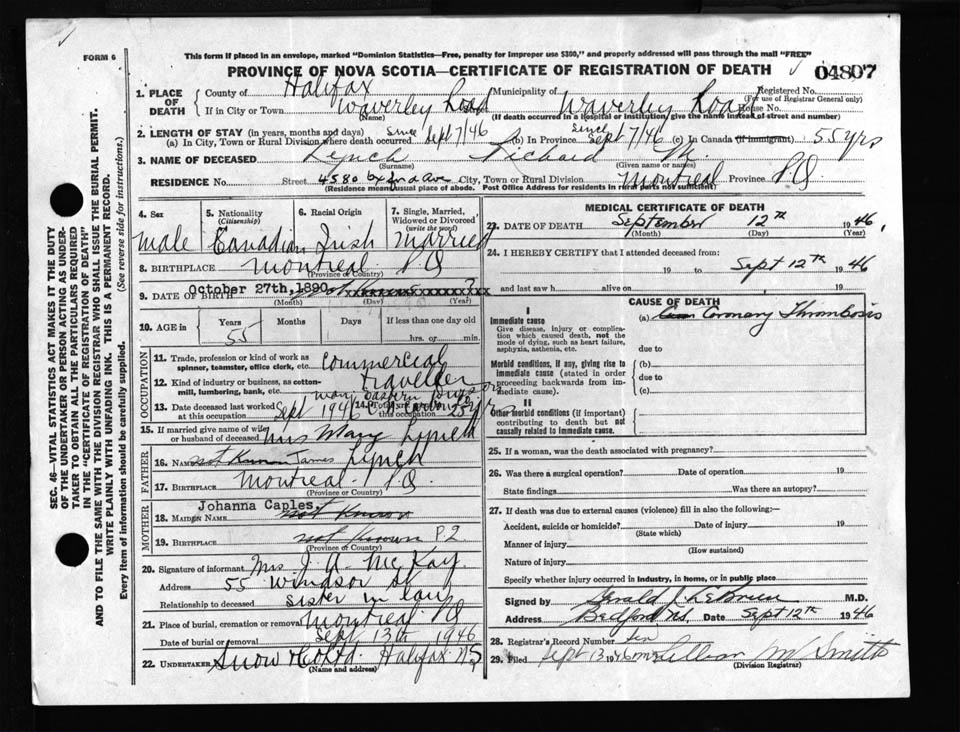 FORM 6
This form if placed in an envelope, marked "Dominion Statistics—Free, penalty for improper use $300," and properly addressed will pass through the mail "FREE"
PROVINCE OF NOVA SCOTIA—CERTIFICATE OF REGISTRATION OF DEATH
04807
1. PLACE OF DEATH
County of Halifax Municipality of Registered No.
(For use of Registrar General only)
If in City or Town Waverley Road Waverley Road House No.
(Name) (If death occurred in a hospital or institution, give the name instead of street and number)
2. LENGTH OF STAY (in years, months and days)
(a) In City, Town or Rural Division where death occurred Since Sept 7/46 (b) In Province Since Sept 7/46 (c) In Canada (if immigrant) 55 yrs
3. NAME OF DECEASED Lynch Richard M.
(Surname) (Given name or names)
RESIDENCE No. Street 4580 Ave City, Town or Rural Division Montreal Province P.Q.
(Residence means usual place of abode. Post Office Address for residents in rural parts not sufficient)
4. Sex
male
5. Nationality
(Citizenship)
Canadian
6. Racial Origin
Irish
7. Single, Married, Widowed or Divorced
(write the word)
Married
8. BIRTHPLACE Montreal P.Q
(Province or Country)
9. DATE OF BIRTH October 27th, 1890 xxxxxxxxxxxxxxxx
(Month) (Day) (Year)
10. AGE in
Years Months Days If less than one day old
55 hrs. or min.
OCCUPATION
11. Trade, profession or kind of work as spinner, teamster, office clerk, etc. Commercial traveller
12. Kind of industry or business, as cotton-mill, lumbering, bank, etc.
13. Date deceased last worked at this occupation Sept 1946
14. Total yrs. this occupation
15. If married give name of wife or husband of deceased Mrs Mary Lynch
FATHER
16. Name not Known James Lynch
17. Birthplace Montreal P.Q.
(Province or Country)
MOTHER
18. MAIDEN NAME Johanna Caples not Known
19. BIRTHPLACE not Known P.Q
(Province or Country)
20. Signature of informant Mrs J. A. McKay
Address 55 Windsor St
Relationship to deceased sister in law
21. Place of burial, cremation or removal Montreal P.Q
Date of burial or removal Sept 13th 1946
22. UNDERTAKER Snow & Co Ltd. Halifax NS
(Name and address)
MEDICAL CERTIFICATE OF DEATH
23. DATE OF DEATH September 12th 1946
(Month) (Day) (Year)
24. I HEREBY CERTIFY that I attended deceased from:
19 to Sept 12th 1946
and last saw h alive on 19
CAUSE OF DEATH
I
Immediate cause
Give disease, injury or complication which caused death, not the mode of dying, such as heart failure, asphyxia, asthenia, etc.
(a) Coronary Thrombosis
due to
Morbid conditions, if any, giving rise to immediate cause (stated in order of proceeding backwards from immediate cause).
(b)
due to
(c)
II
Other morbid conditions (if important) contributing to death but not causally related to immediate cause.
25. If a woman, was the death associated with pregnancy?
26. Was there a surgical operation? Date of operation 19
State findings Was there an autopsy?
27. If death was due to external causes (violence) fill in also the following:—
Accident, suicide or homicide? Date of injury 19
(State which)
Manner of injury
(How sustained)
Nature of injury
Specify whether injury occurred in industry, in home, or in public place
Signed by Gerald J. LeBrun M.D.
Address Bedford N.S. Date Sept 12th 1946
28. Registrar's Record Number Ten
29. Filed Sept 13 1946 Mrs Lillian M Smith
(Division Registrar)
SEC. 46—VITAL STATISTICS ACT MAKES IT THE DUTY
OF THE UNDERTAKER OR PERSON ACTING AS UNDER-
TAKER TO OBTAIN ALL THE PARTICULARS REQUIRED
IN THE "CERTIFICATE OF REGISTRATION OF DEATH"
AND TO FILE THE SAME WITH THE DIVISION REGISTRAR WHO SHALL ISSUE THE BURIAL PERMIT.
WRITE PLAINLY WITH UNFADING INK. THIS IS A PERMANENT RECORD.
Every item of information should be carefully supplied. (See reverse side for instructions.)